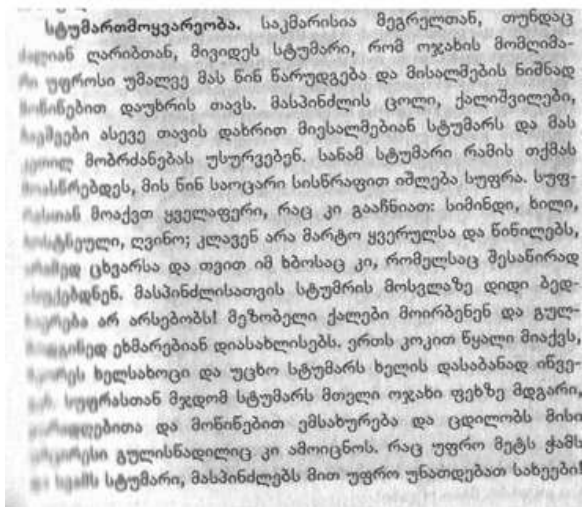 სტუმართმოყვარეობა. საკმარისია მეგრელთან, თუნდაც
ღარიბთან, მივიდეს სტუმარი, რომ ოჯახის მომღიმა-
რი უფროსი უმალვე მას წინ წარუდგება და მისალმების ნიშნად
მოწიწებით დაუხრის თავს. მასპინძლის ცოლი, ქალიშვილები,
ბავშვები ასევე თავის დახრით მიესალმებიან სტუმარს და მას
კეთილ მობრძანებას უსურვებენ. სანამ სტუმარი რამის თქმას
მოასწრებდეს, მის წინ საოცარი სისწრაფით იშლება სუფრა. სუფ-
რასთან მოაქვთ ყველაფერი, რაც კი გააჩნიათ: სიმინდი, ხილი,
ბოსტნეული, ღვინო; კლავენ არა მარტო ყვერულსა და წიწილებს,
არამედ ცხვარსა და თვით იმ ხბოსაც კი, რომელსაც შესაწირად
მასპინძლისათვის სტუმრის მოსვლაზე დიდი ბედ-
ნიერება არ არსებობს! მეზობელი ქალები მოირბენენ და გულ-
მოდგინედ ეხმარებიან დიასახლისებს. ერთს კოკით წყალი მიაქვს,
მეორეს ხელსახოცი და უცხო სტუმარს ხელის დასაბანად იწვე-
სუფრასთან მჯდომ სტუმარს მთელი ოჯახი ფეხზე მდგარი,
და მოწიწებით ემსახურება და ცდილობს მისი
გულისწადილიც კი ამოიცნოს. რაც უფრო მეტს ჭამს
და სვამს სტუმარი, მასპინძლებს მით უფრო უნათდებათ სახეები!